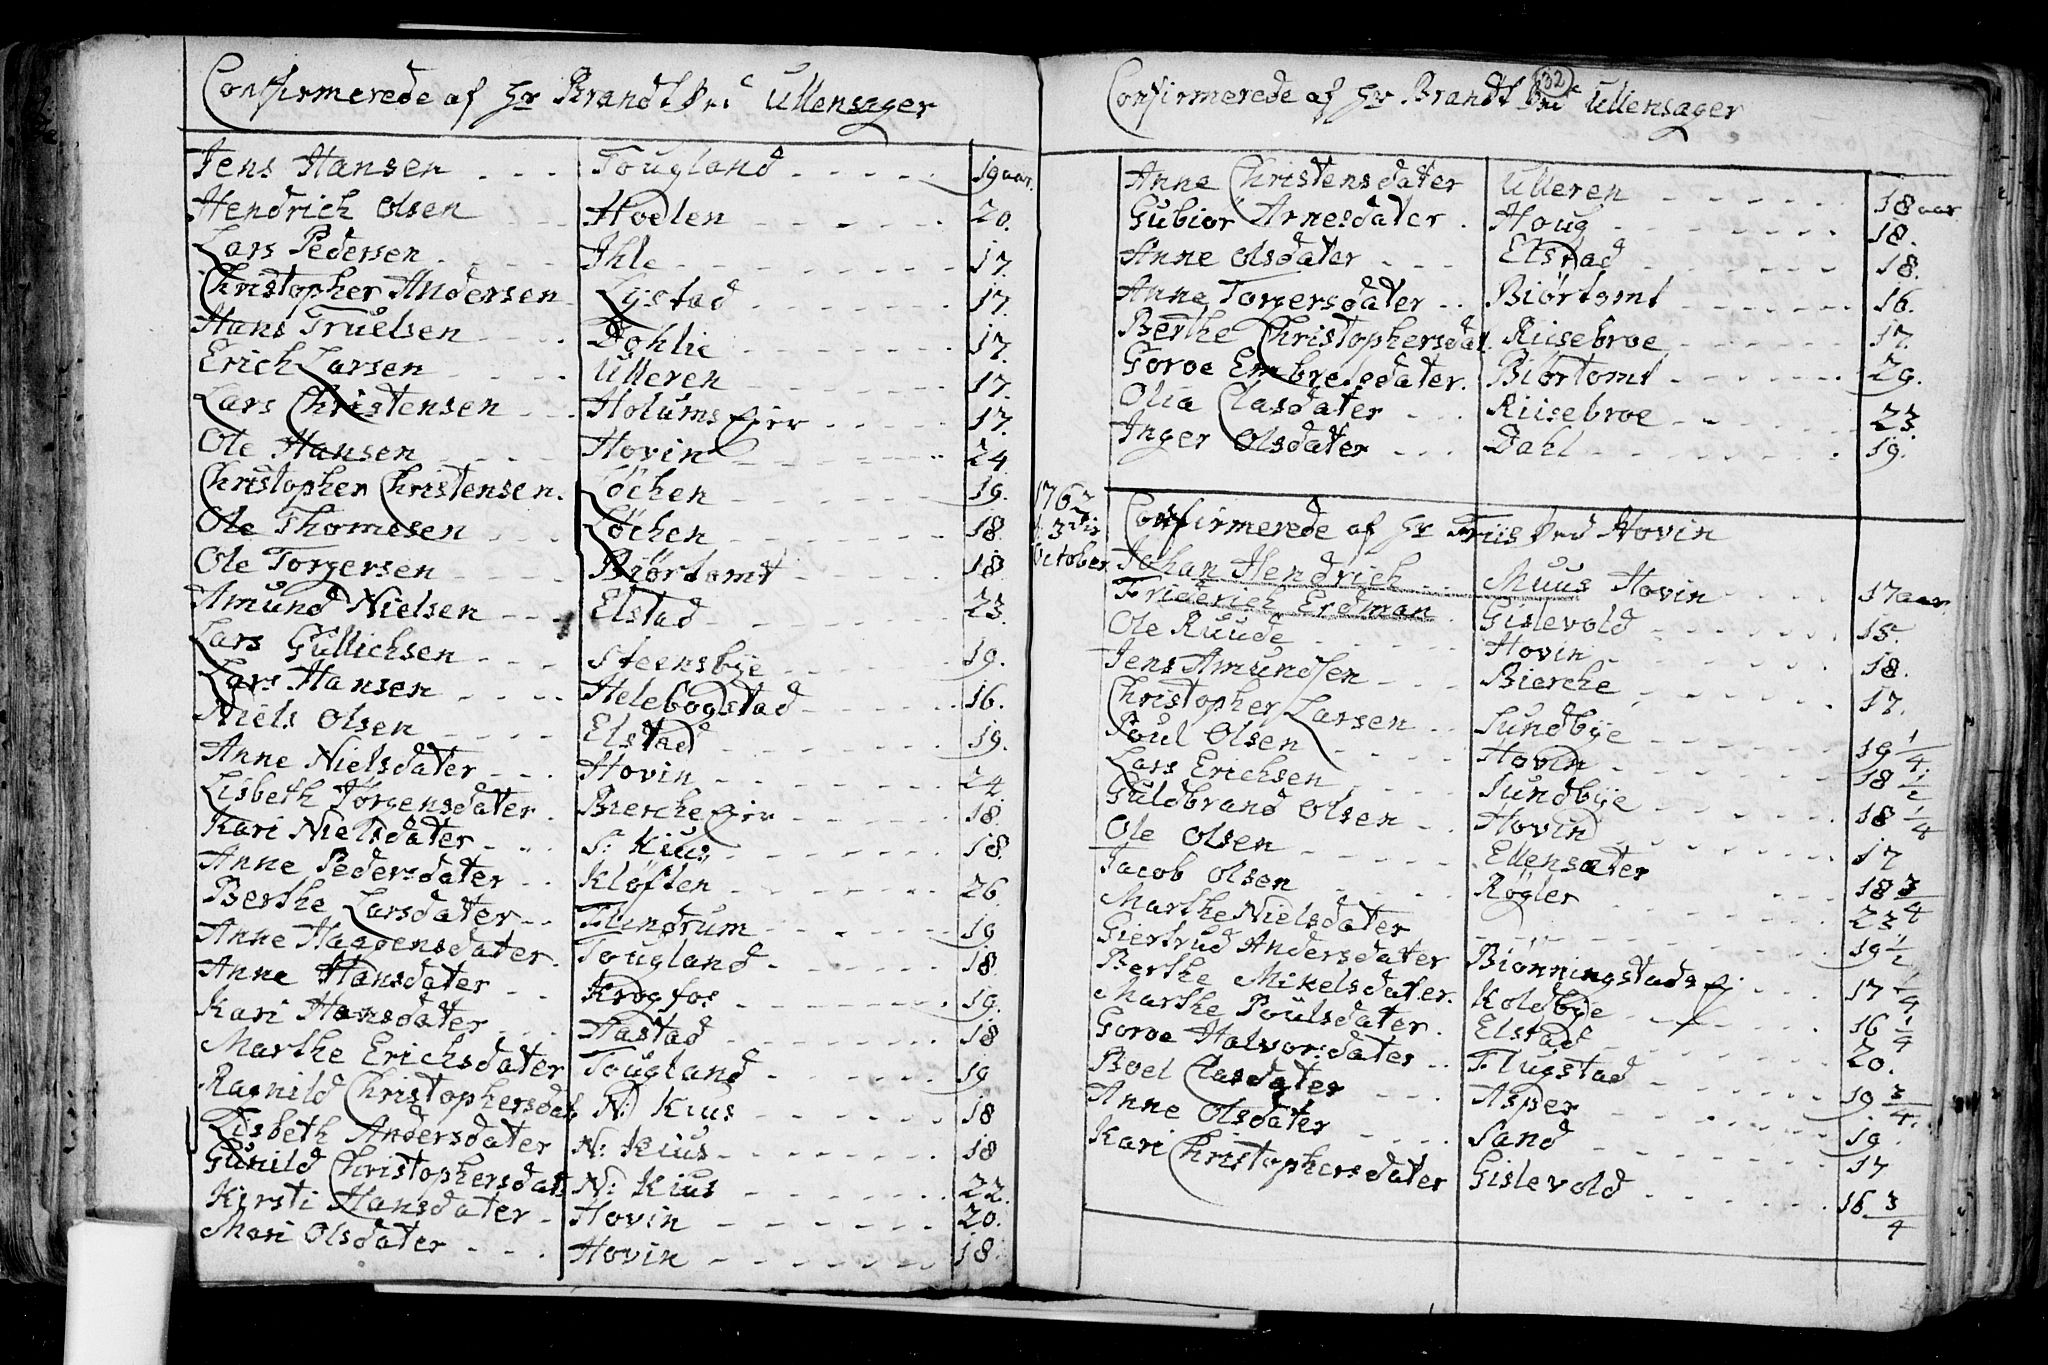 Confirmerede af Hr Brandt Ved Ullensager
Jens Hansen Tougland 19 aar.
Hendrich Olsen Hoelen 20.
Lars Pedersen Ihle 17.
Christopher Andersen Lystad 17.
Hans Truelsen Dohlie 17.
Erich Larsen Ulleren 17.
Lars Christensen Holums Eier 17.
Ole Hansen Hovin 24
Christopher Christensen. Løchen 19.
Ole Thomesen Løchen 18.
Ole Torgersen Biørtomt 18
Amund Nielsen Elstad 23.
Lars Gullichsen Steensbye 19.
Lars Hansen Helebogstad 16.
Niels Olsen Elstad 19.
Anne Nielsdater Hovin 24
Lisbeth Jørgensdater. Bierche Eier 18.
Kari Nielsdater S: Kius 18.
Anne Pedersdater Kløften 26
Berthe Larsdater Flindrum 19
Anne Haagensdater. Tougland 18.
Anne Hansdater Krogfos 19.
Kari Hansdater Tastad 18
Marthe Erichsdater Tougland 19
Ragnild Christophersdat. N: Kius 18
Lisbeth Andersdater N: Kius 18
Gunild Christophersdat. N: Kius 22.
Kirsti Hansdater Hovin 20.
Mari Olsdater Hovin 18.
132
Confirmerede af Hr Brandt Ved Ullensager
Anne Christensdater Ulleren 18 aar
Gubiør Arnesdater. Houg 18.
Anne Olsdater Elstad 18.
Anne Torgersdater Biørtomt 16.
Berthe Christophersdat. Riisebroe 17.
Goroe Embregsdater. Biørtomt 20.
Olia Clasdater Riisebroe 23.
Inger Olsdater Dahl 19.
1762
d. 3die
October
Confirmerede af Hr Friis Ved Hovin
Johan Hendrich Muus Hovin 17 aar.
Friderich Erdman Gislevold 15.
Ole Ruude Hovin 18.
Jens Amundsen Bierche 17.
Christopher Larsen Sundbye 19 1/4
Poul Olsen Hovin 18 1/2
Lars Erichsen Sundbye 18 1/4
Guldbrand Olsen Hovin 17
Ole Olsen Ellensæter 18 3/4
Jacob Olsen Røgler 23.
Marthe Nielsdater 19 1/2
Giertrud Andersdater Biønningstads E. 17 1/4
Berthe Mikelsdater. Koldbye 16 1/4
Marthe Poulsdater. Elstad 20.
Goroe Halvorsdater Flugstad 19 3/4.
Boel Clasdater Asper 19.
Anne Olsdater Sand 17
Kari Christophersdater Gislevold 16 3/4